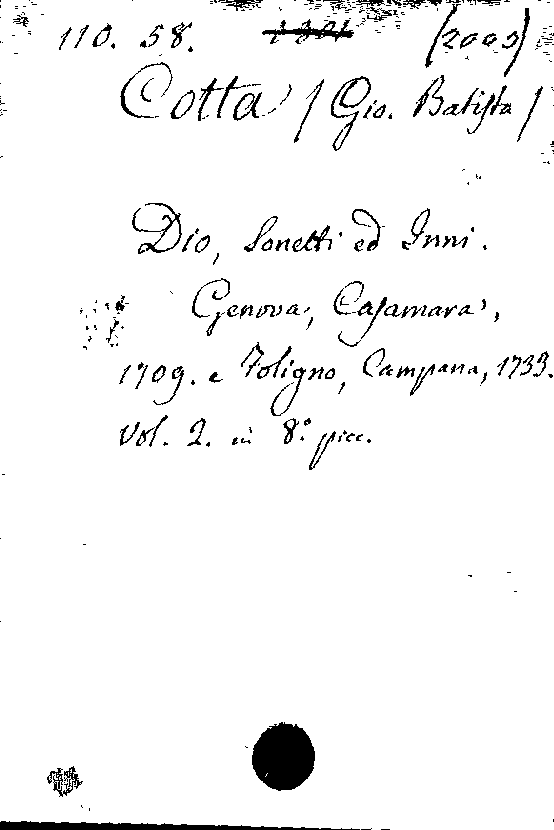 110. 58. (2000)
Cotta / Gio. Batista /
Dio, Sonetti ed Inni.
Genova, Casamara,
1709. e Foligno, Campana, 1733.
Vol. 2. in 8.° picc.